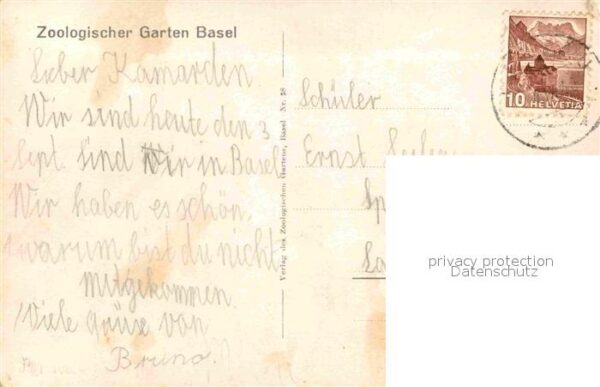 Zoologischer Garten Basel
Lieber Kamarden
Wir sind heute den 3
Sept. Sind Wir in Basel
Wir haben es schön.
warum bist du nicht
mitgekommen.
Viele grüse von
Bruno.
Verlag des Zoologischen Gartens, Basel Nr. 58
Schüler
Ernst
10 HELVETIA
privacy protection
Datenschutz